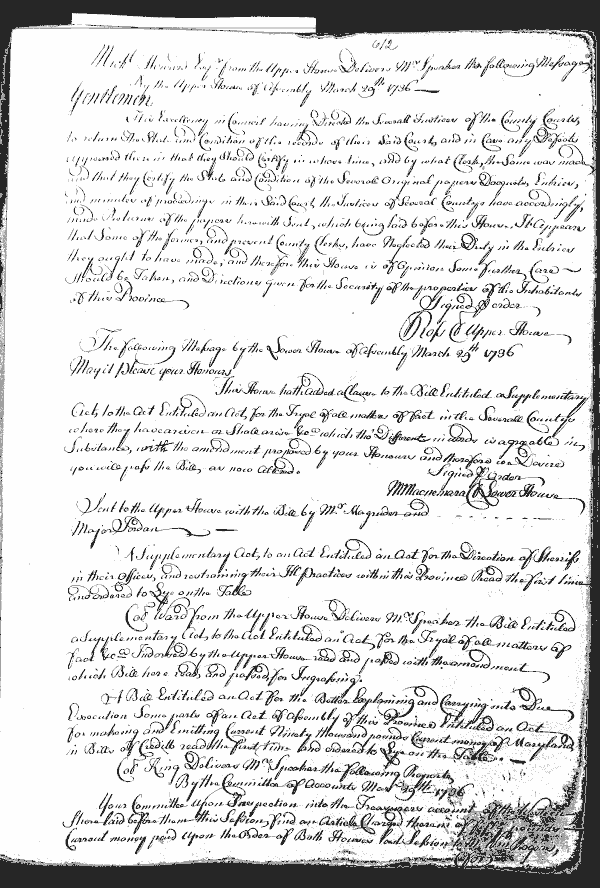 612
Mich.l Howard Esq.r from the Upper House Delivers M.r Speaker the following Message
By the Upper House of Assembly March 29.th 1736
Gentlemen
His Excellency in Council having Directed the Severall Justices of the County Courts,
to return the State and Condition of the records of their Said Courts, and in Case any Defects
appeared therein that they Should Certify in whose time, and by what Clerk, the Same was made
and that they Certify the State and Condition of the Several Original papers Docquets, Entries,
and minutes of proceedings in their Said Court, the Justices of Several Countys have accordingly,
made Returns of the papers herewith Sent, which being laid before this House, It Appears
that Some of the former, and present County Clerks, have Neglected their Duty in the Entries
they ought to have made, and therefore this House is of Opinion Some further Care
Should be Taken, and Directions given for the Security of the properties of the Inhabitants
of this Province
Signed p order
Ross Cl Upper House
The following Message by the Lower House of Assembly March 29th 1736
May it Please your Honours
This House hath added a Clause to the Bill Entituled a Supplementary
Act, to the Act Entituled an Act, for the Tryal of all matters of fact in the Severall Countys
where they have arisen or Shall arise &c.a which tho' Different in words is agreeable in,
Substance, with the amendment proposed by your Honours and therefore is Desired
you will pass the Bill, as now
Signed p order
M Macnemara Cl Lower House
Sent to the Upper House with the Bill by M.r Magruder and
Major Jordan
A Supplementary Act, to an Act Entituled an Act for the Direction of Sherriffs
in their offices, and restraining their Ill practices within this Province Read the first time
and ordered to Lye on the Table
Col. Ward from the Upper House Delivers M.r Speaker the Bill Entituled
a Supplementary Act, to the Act Entituled an Act, for the Tryal of all matters of
fact &c.a Indorsed by the Upper House read and passed with the amendment
which Bill here read, and passed for Ingrossing.
A Bill Entituled an Act for the Better Explaining and Carrying into Due
Execution Some parts of an Act of Assembly of this Province Entituled an Act
for making and Emitting Current Ninety thousand pounds Current money of Maryland,
in Bills of Credit read the first time and ordered to Lye on the Table.
Col. King Delivers M.r Speaker the following Report,
By the Committee of Accounts Mar. 29th 1736
Your Committee Upon Inspection into the Treasurers account of the Western
Shore laid before them this Session, find an Article Charged therein of pounds
Current money paid Upon the Order of Both Houses last Session to